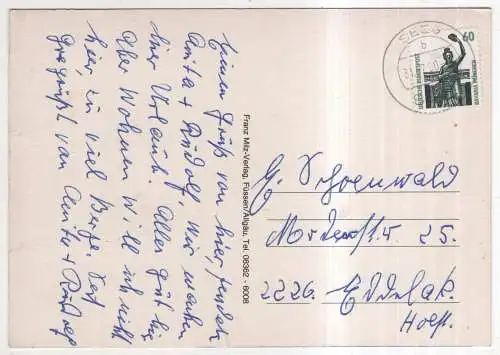 Einen Gruß von hier, senden
Anita + Rudolf, wir machen
hier Urlaub. Alles gut
Aber Wohnen will ich nicht
hier, zu viel Berge. Seid
Gegrüßt von Anita + Rudolf
Franz Milz-Verlag, Füssen/Allgäu, Tel. 08362 - 6008
SEEG
60
DEUTSCHE BUNDESPOST
G. Schoenwald
25.
2226. Eddelak.
Holst.